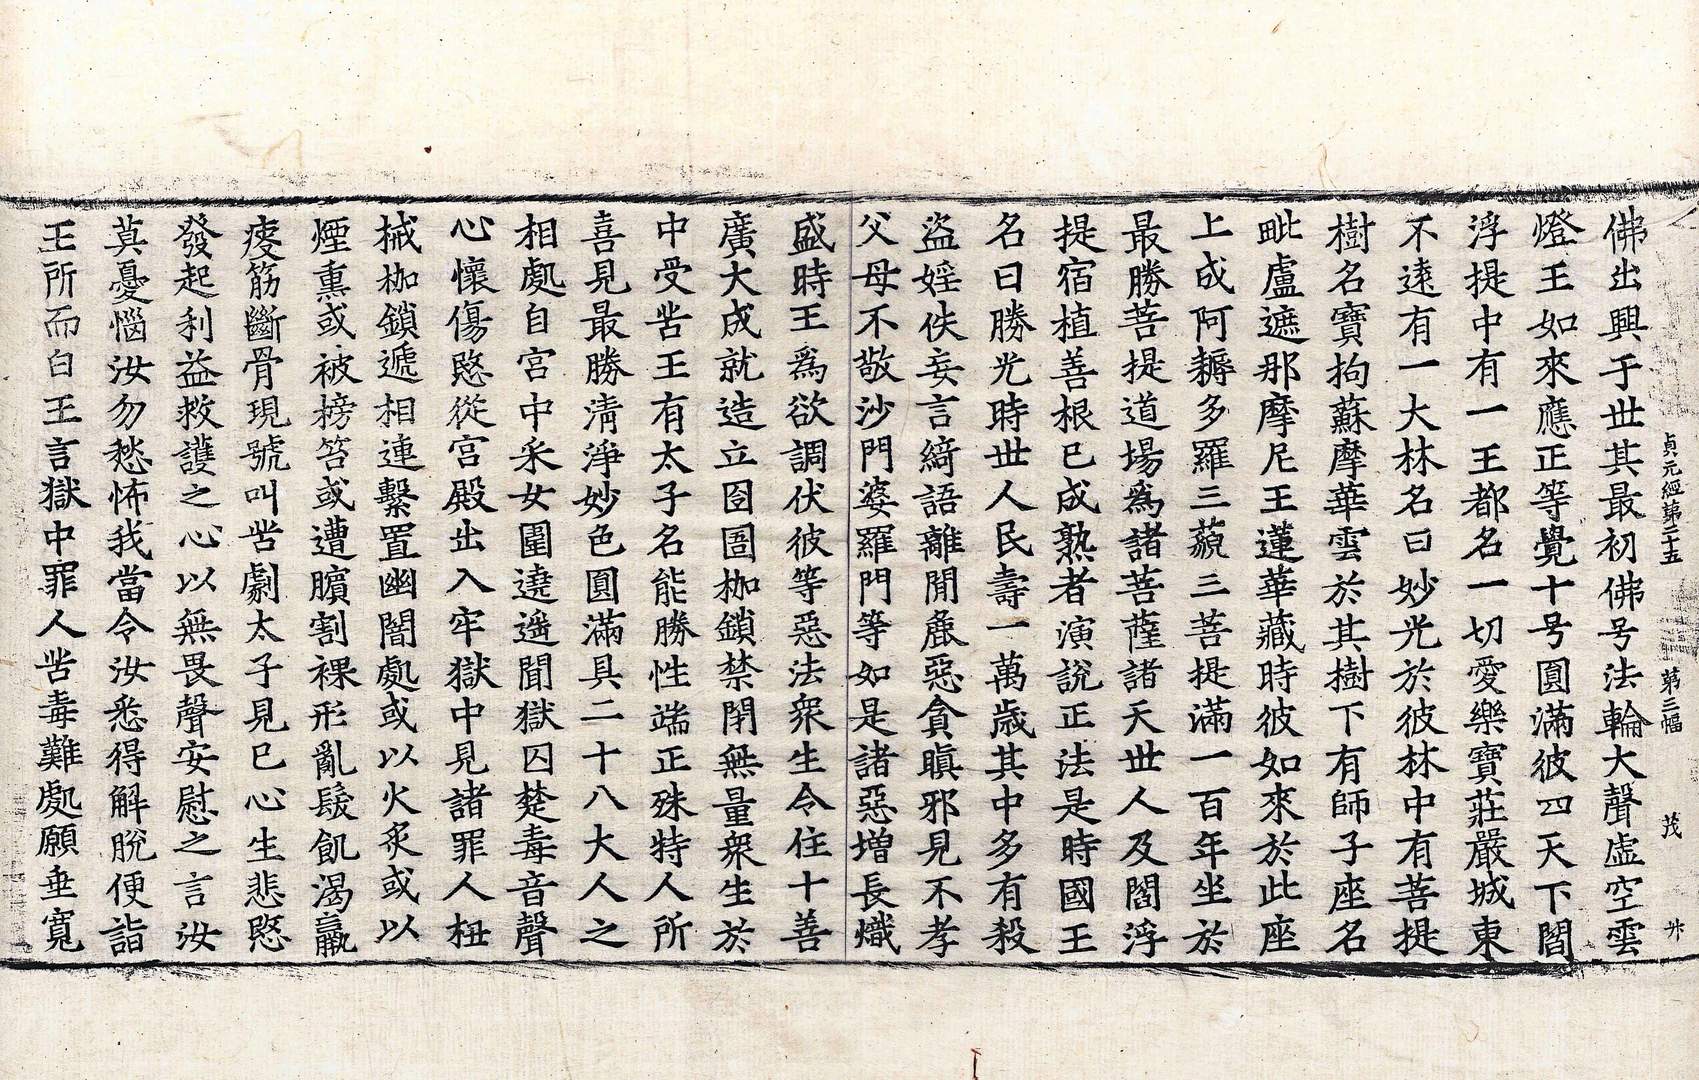 貞元經第二十五 第三幅 茂
佛出興于世其最初佛号法輪大聲虛空雲
燈王如來應正等覺十号圓滿彼四天下閻
浮提中有一王都名一切愛樂寶莊嚴城東
不遠有一大林名曰妙光於彼林中有菩提
樹名寶拘蘇摩華雲於其樹下有師子座名
毗盧遮那摩尼王蓮華藏時彼如來於此座
上成阿耨多羅三藐三菩提滿一百年坐於
最勝菩提道場爲諸菩薩諸天世人及閻浮
提宿植善根已成熟者演說正法是時國王
名曰勝光時世人民壽一萬歲其中多有殺
盜婬佚妄言綺語離間麁惡貪瞋邪見不孝
父母不敬沙門婆羅門等如是諸惡增長熾
盛時王爲欲調伏彼等惡法衆生令住十善
廣大成就造立囹圄枷鎖禁閉無量衆生於
中受苦王有太子名能勝性端正殊特人所
喜見最勝淸淨妙色圓滿具二十八大人之
相處自宮中采女圍遶遥聞獄囚楚毒音聲
心懷傷愍從宮殿出入牢獄中見諸罪人杻
械枷鎖遞相連繫置幽闇處或以火炙或以
煙熏或被榜笞或遭臏割裸形亂髮飢渴羸
瘦筋斷骨現號叫苦劇太子見已心生悲愍
發起利益救護之心以無畏聲安慰之言汝
莫憂惱汝勿愁怖我當令汝悉得解脫便詣
王所而白王言獄中罪人苦毒難處願垂寬